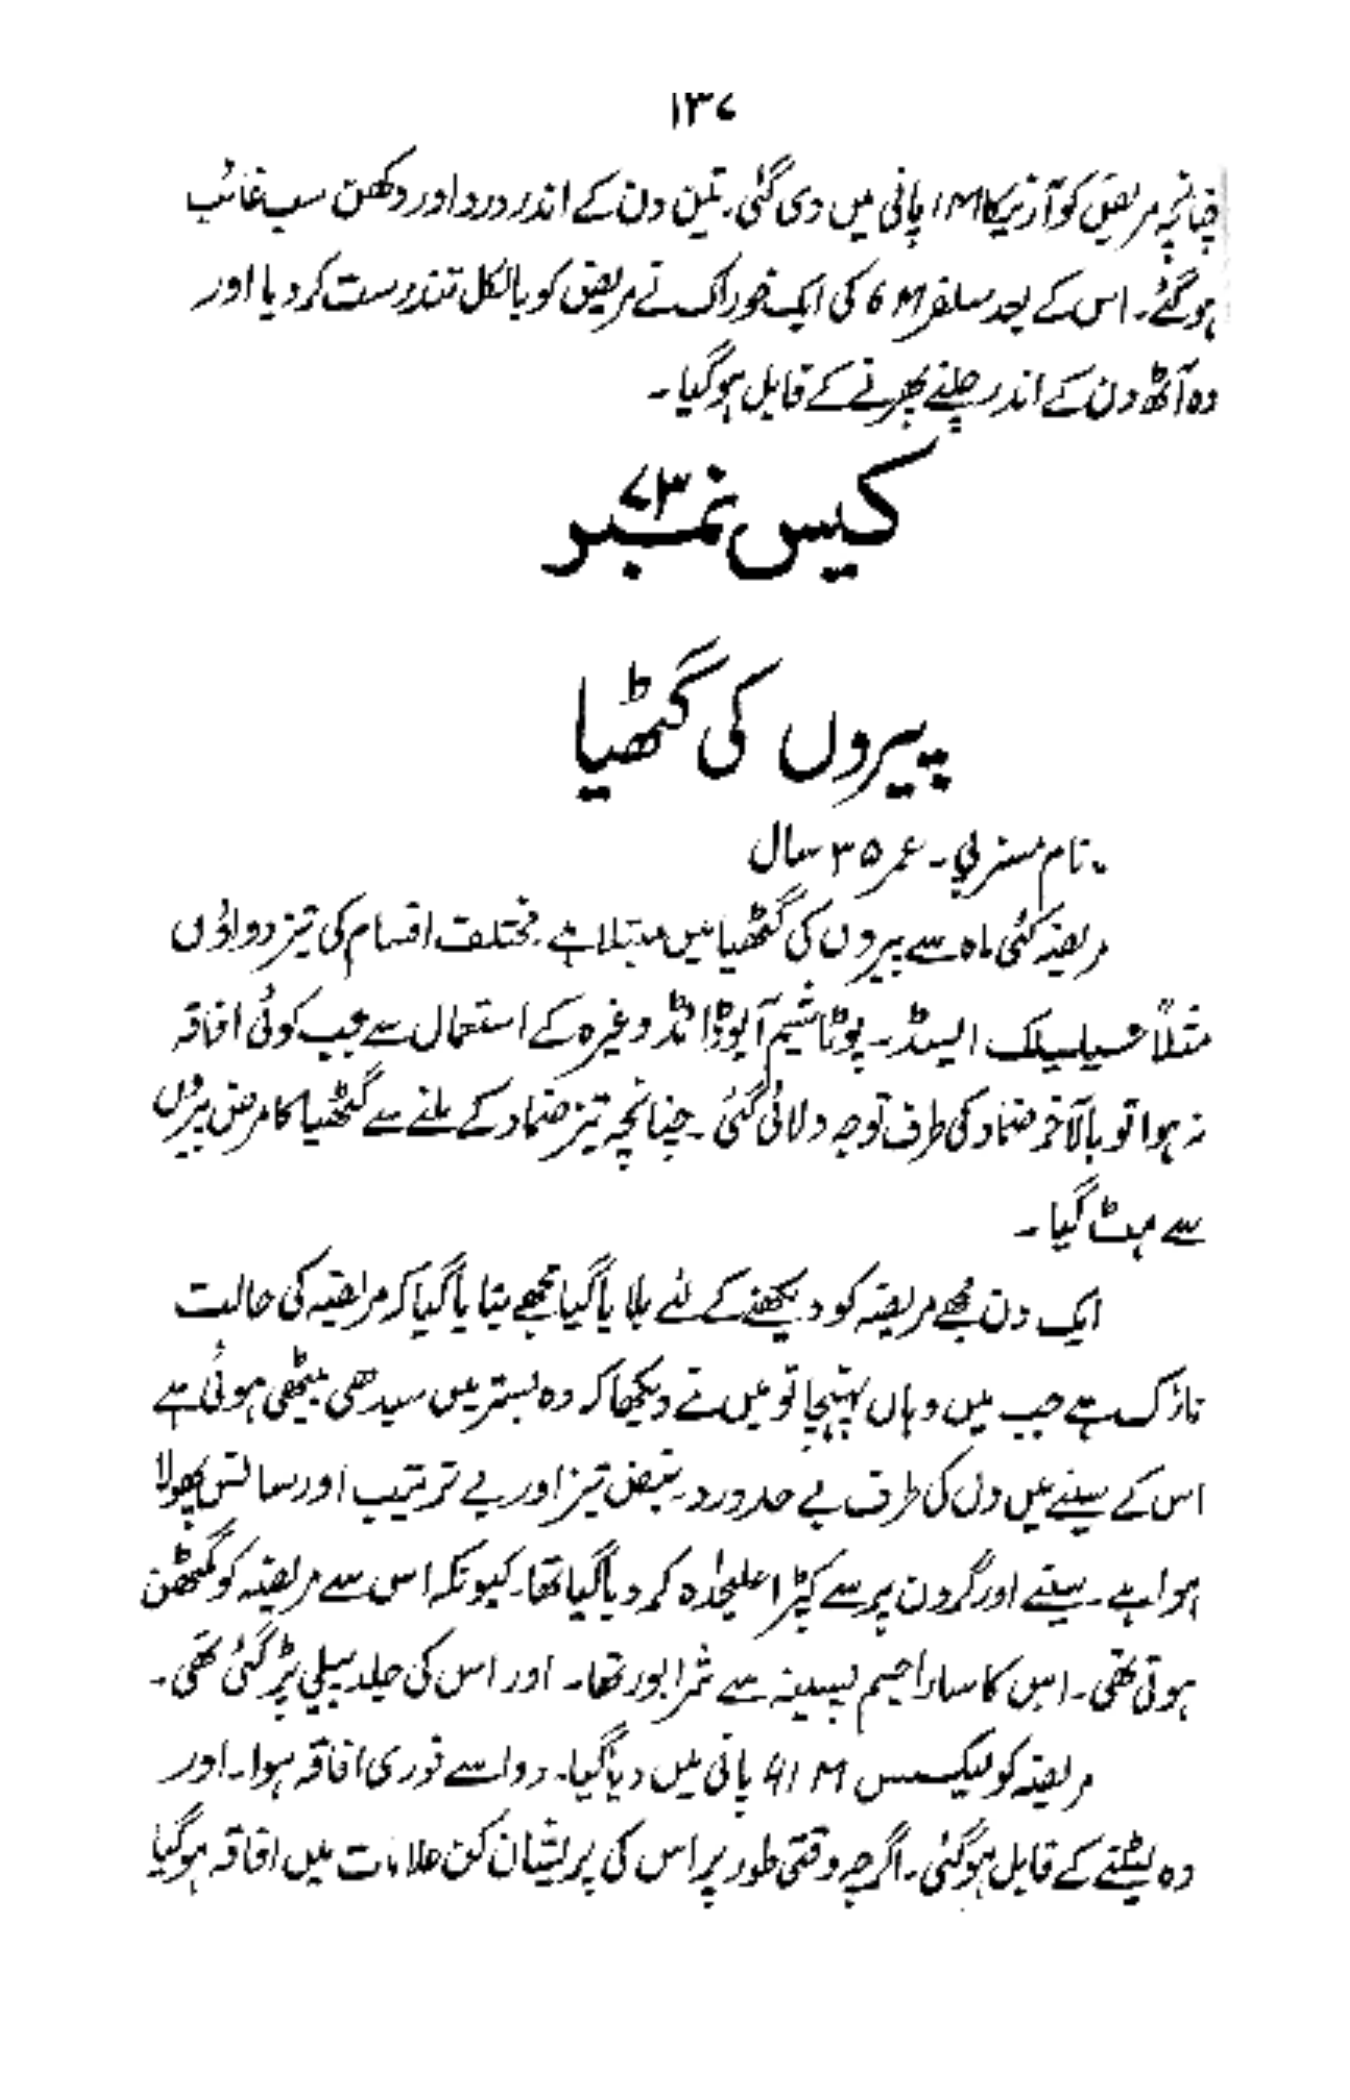 ۱۳۷
چنانچہ مریض کو آرنیکا 1M پانی میں دی گئی۔ تین دن کے اندر درد اور دکھن سب غائب
ہو گئے۔ اس کے بعد سلفر 6M کی ایک خوراک نے مریض کو بالکل تندرست کر دیا اور
وہ آٹھ دن کے اندر چلنے پھرنے کے قابل ہو گیا۔
کیس نمبر ۷۳
پیروں کی گٹھیا
نام مسز بی۔ عمر ۳۵ سال
مریضہ کئی ماہ سے پیروں کی گٹھیا میں مبتلا ہے۔ مختلف اقسام کی تیز دواؤں
مثلاً سیلیسیلک ایسڈ۔ پوٹاشیم آیوڈائڈ وغیرہ کے استعمال سے جب کوئی افاقہ
نہ ہوا تو بالآخر ضماد کی طرف توجہ دلائی گئی۔ چنانچہ تیز ضماد کے ملنے سے گٹھیا کا مرض پیروں
سے ہٹ گیا۔
ایک دن مجھے مریضہ کو دیکھنے کے لئے بلایا گیا مجھے بتایا گیا کہ مریضہ کی حالت
نازک ہے جب میں وہاں پہنچا تو میں نے دیکھا کہ وہ بستر میں سیدھی بیٹھی ہوئی ہے
اس کے سینے میں دل کی طرف بے حد درد۔ نبض تیز اور بے ترتیب اور سانس پھولا
ہوا ہے۔ سینے اور گردن پر سے کپڑا علیحدہ کر دیا گیا تھا۔ کیونکہ اس سے مریضہ کو گھٹن
ہوتی تھی۔ اس کا سارا جسم پسینہ سے شرابور تھا۔ اور اس کی جلد پیلی پڑ گئی تھی۔
مریضہ کو لیکسس 1M پانی میں دیا گیا۔ دوا سے فوری افاقہ ہوا۔ اور
وہ لیٹنے کے قابل ہو گئی۔ اگرچہ وقتی طور پر اس کی پریشان کن علامات میں افاقہ ہو گیا